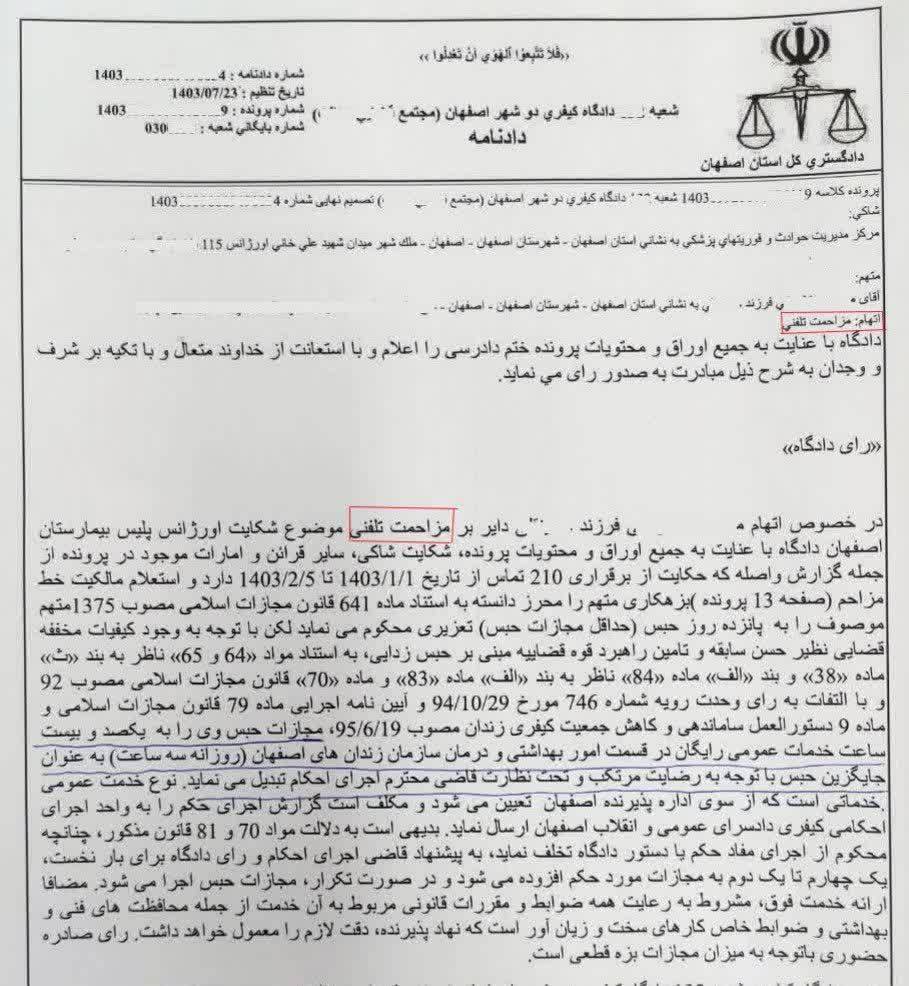 «فَلاَ تَتَّبِعُوا اَلْهَوَي اَنْ تَعْدِلُوا»
شماره دادنامه : 4 1403
تاریخ تنظیم : 1403/07/23
شماره پرونده : 9 1403
شماره بایگاني شعبه : 030
شعبه دادگاه کیفري دو شهر اصفهان (مجتمع )
دادنامه
دادگستري کل استان اصفهان
پرونده کلاسه 9 1403 شعبه دادگاه کیفري دو شهر اصفهان (مجتمع ) تصمیم نهایی شماره 4 1403
شاکي:
مرکز مدیریت حوادث و فوریتهاي پزشکي به نشاني استان اصفهان - شهرستان اصفهان - اصفهان - ملك شهر میدان شهید علي خاني اورژانس 115
متهم:
آقاي فرزند به نشاني استان اصفهان - شهرستان اصفهان - اصفهان -
اتهام: مزاحمت تلفني
دادگاه با عنایت به جمیع اوراق و محتویات پرونده ختم دادرسی را اعلام و با استعانت از خداوند متعال و با تکیه بر شرف
و وجدان به شرح ذیل مبادرت به صدور رای مي نماید.
«رای دادگاه»
در خصوص اتهام فرزند دایر بر مزاحمت تلفنی موضوع شکایت اورژانس پلیس بیمارستان
اصفهان دادگاه با عنایت به جمیع اوراق و محتویات پرونده، شکایت شاکی، سایر قرائن و امارات موجود در پرونده از
جمله گزارش واصله که حکایت از برقراری 210 تماس از تاریخ 1403/1/1 تا 1403/2/5 دارد و استعلام مالکیت خط
مزاحم (صفحه 13 پرونده )بزهکاری متهم را محرز دانسته به استناد ماده 641 قانون مجازات اسلامی مصوب 1375متهم
موصوف را به پانزده روز حبس (حداقل مجازات حبس) تعزیری محکوم می نماید لکن با توجه به وجود کیفیات مخففه
قضایی نظیر حسن سابقه و تامین راهبرد قوه قضاییه مبنی بر حبس زدایی، به استناد مواد «64 و 65» ناظر به بند «ث»
ماده «38» و بند «الف» ماده «84» ناظر به بند «الف» ماده «83» و ماده «70» قانون مجازات اسلامی مصوب 92
و با التفات به رای وحدت رویه شماره 746 مورخ 94/10/29 و آیین نامه اجرایی ماده 79 قانون مجازات اسلامی و
ماده 9 دستورالعمل ساماندهی و کاهش جمعیت کیفری زندان مصوب 95/6/19، مجازات حبس وی را به یکصد و بیست
ساعت خدمات عمومی رایگان در قسمت امور بهداشتی و درمان سازمان زندان های اصفهان (روزانه سه ساعت) به عنوان
جایگزین حبس با توجه به رضایت مرتکب و تحت نظارت قاضی محترم اجرای احکام تبدیل می نماید. نوع خدمت عمومی
.خدماتی است که از سوی اداره پذیرنده اصفهان تعیین می شود و مکلف است گزارش اجرای حکم را به واحد اجرای
احکامی کیفری دادسرای عمومی و انقلاب اصفهان ارسال نماید. بدیهی است به دلالت مواد 70 و 81 قانون مذکور، چنانچه
محکوم از اجرای مفاد حکم یا دستور دادگاه تخلف نماید، به پیشنهاد قاضی اجرای احکام و رای دادگاه برای بار نخست،
یک چهارم تا یک دوم به مجازات مورد حکم افزوده می شود و در صورت تکرار، مجازات حبس اجرا می شود. مضافا
ارائه خدمت فوق، مشروط به رعایت همه ضوابط و مقررات قانونی مربوط به آن خدمت از جمله محافظت های فنی و
بهداشتی و ضوابط خاص کارهای سخت و زیان آور است که نهاد پذیرنده، دقت لازم را معمول خواهد داشت. رای صادره
حضوری باتوجه به میزان مجازات بزه قطعی است.